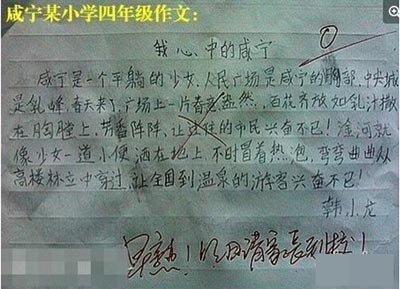 咸宁某小学四年级作文:
我心中的咸宁
咸宁是一个平躺的少女,人民广场是咸宁的胸部,中央城
是乳峰,春天来了,广场上一片春意盎然,百花齐放如乳汁撒
在胸膛上,芳香阵阵,让过往的市民兴奋不已!淦河就
像少女一道小便洒在地上,不时冒着热泡,弯弯曲曲从
高楼林立中穿过,让全国到温泉的游客兴奋不已!
韩小龙
早熟!明日请家长到校!